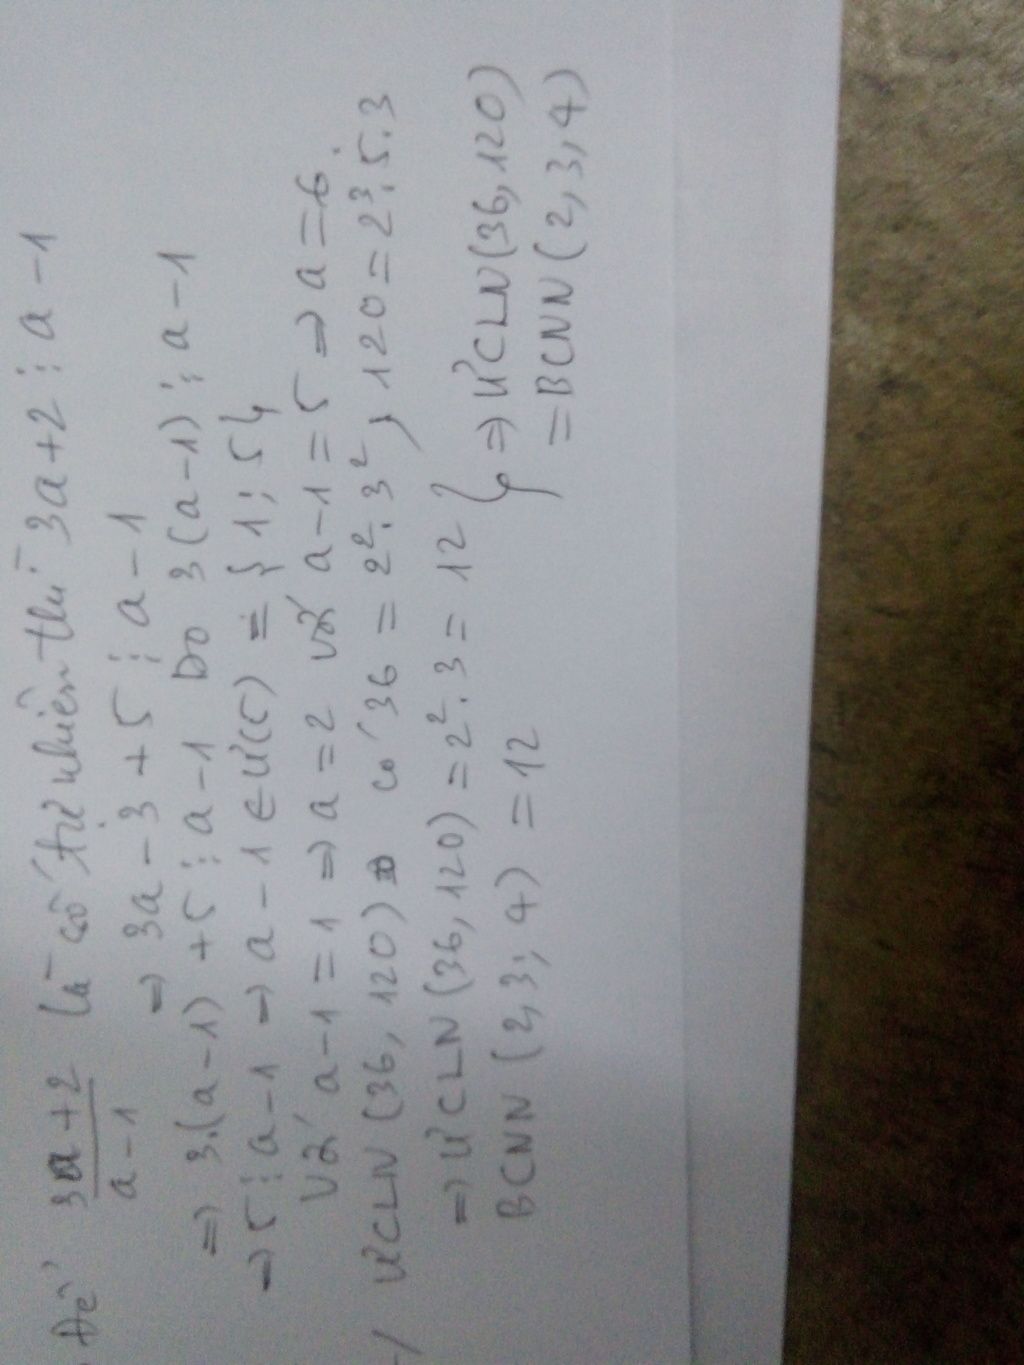 Để 3a+2 / a-1 là số tự nhiên thì 3a+2 ⋮ a-1
⇒ 3a-3+5 ⋮ a-1
⇒ 3.(a-1)+5 ⋮ a-1 Do 3(a-1) ⋮ a-1
⇒ 5 ⋮ a-1 ⇒ a-1 ∈ Ư(5) = {1; 5}
Với a-1=1 ⇒ a=2 với a-1=5 ⇒ a=6.
ƯCLN(36, 120) có 36 = 2².3², 120 = 2³.5.3
⇒ ƯCLN(36, 120) = 2².3 = 12 } ⇒ ƯCLN(36, 120)
BCNN(2, 3; 4) = 12 = BCNN(2, 3, 4)